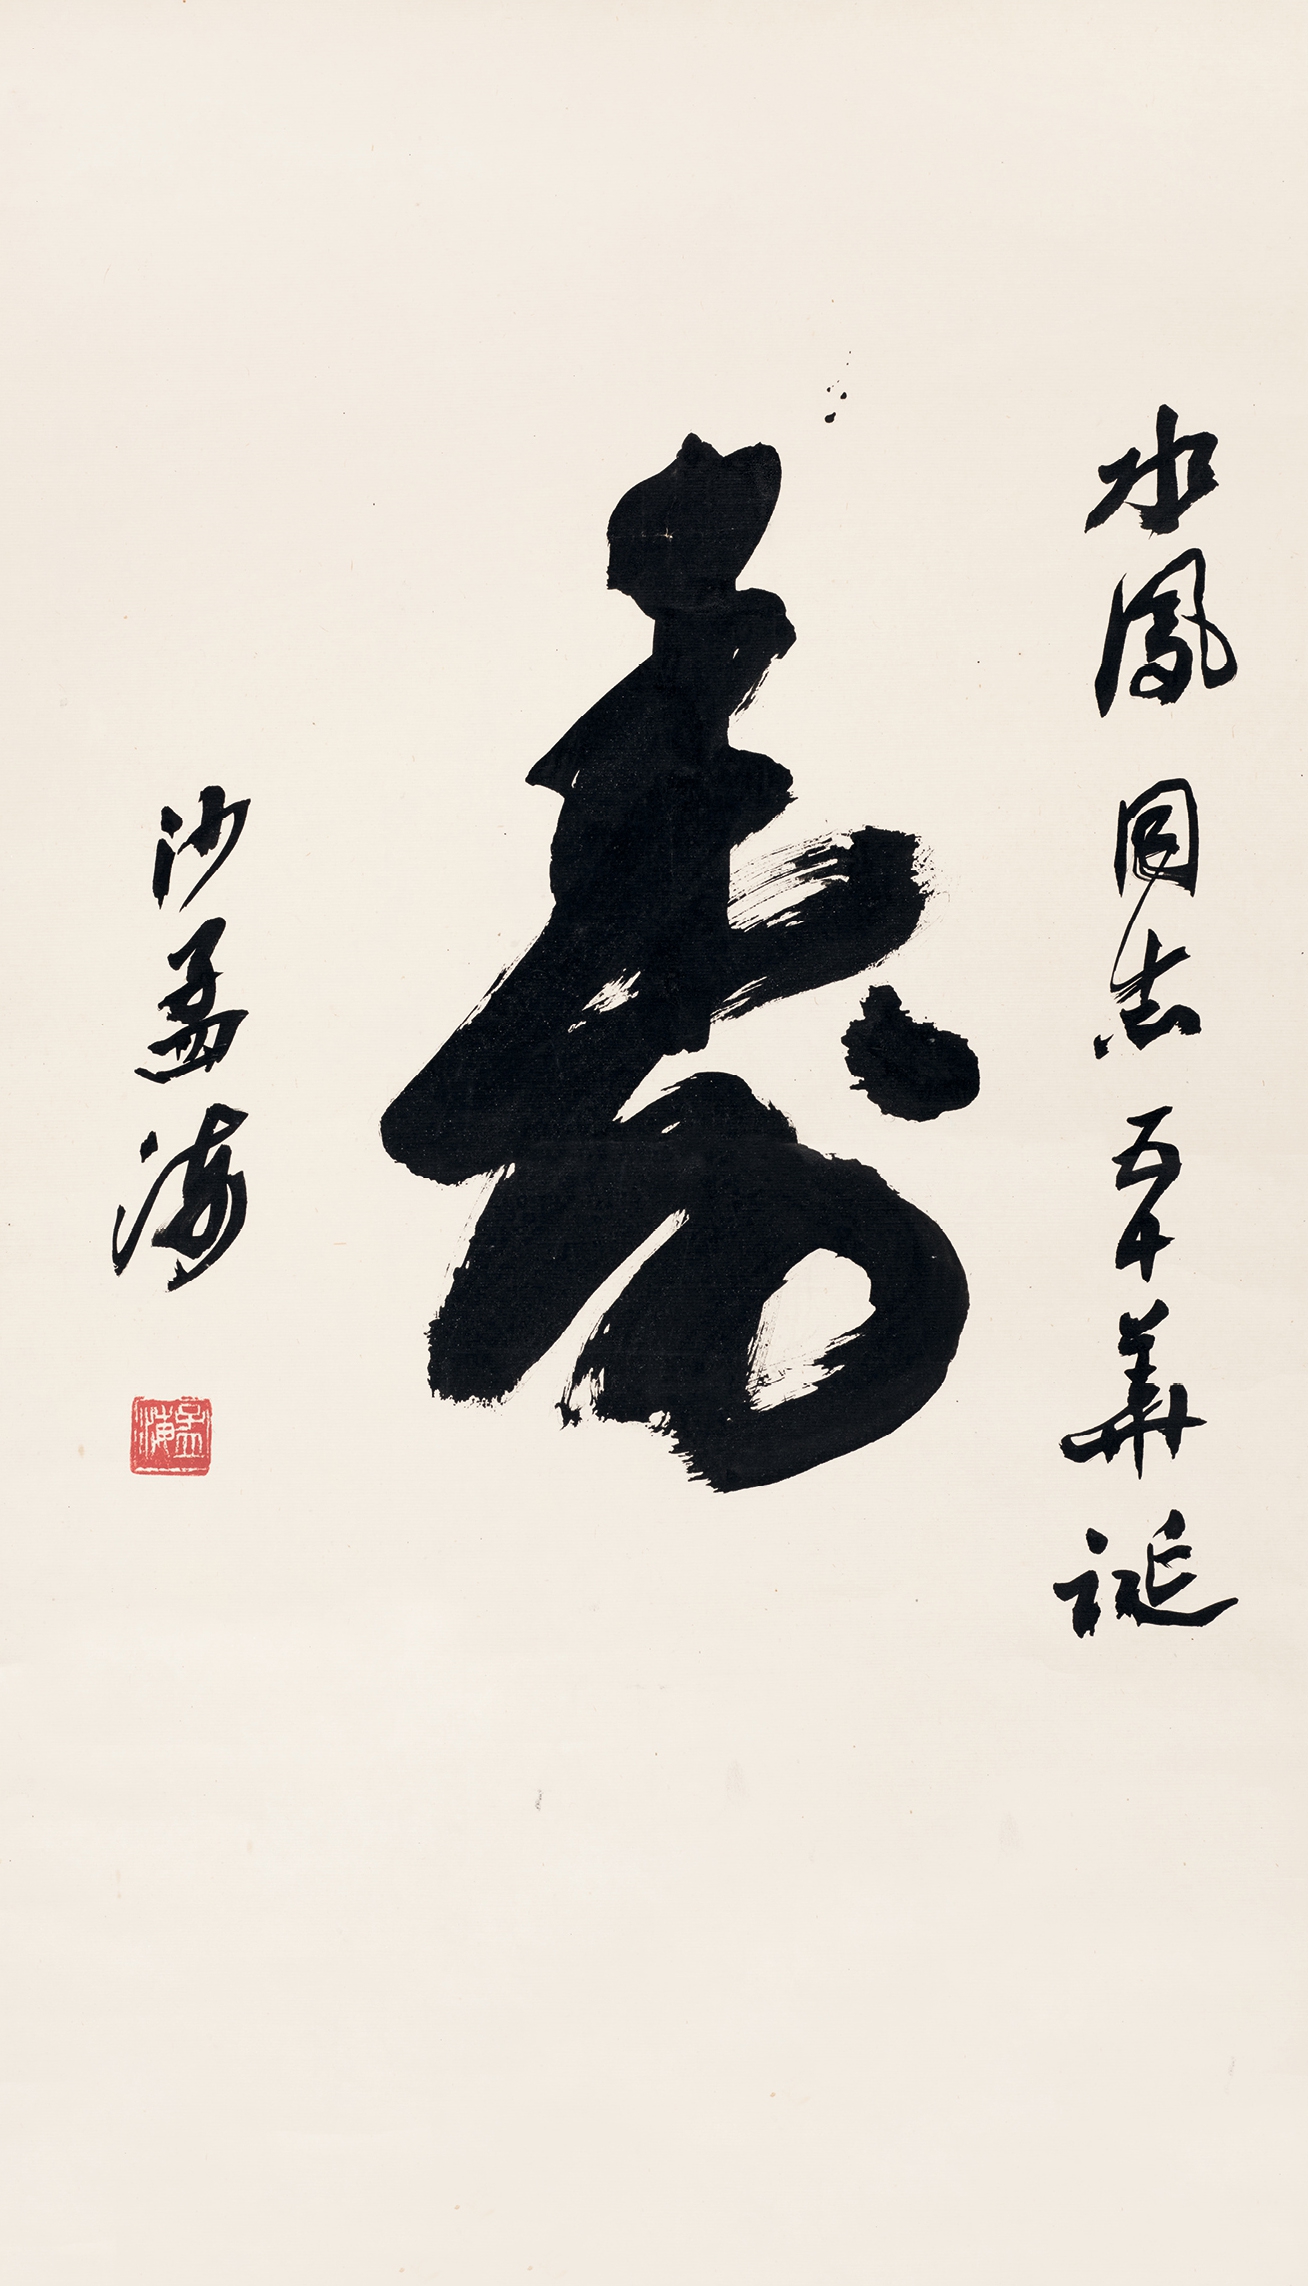 水鳳同志五十華誕
壽
沙孟海
孟海